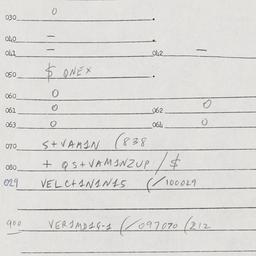 030 0
040 -
041 - 042 -
050 $ QNEX
060 0
061 0 062 0
063 0 064 0
070 S+VAM1N (838
080 + QS+VAM1NZUP / $
029 VELC+1N1N15 (/100029
900 VER1MD1G-1 (/097070 (212